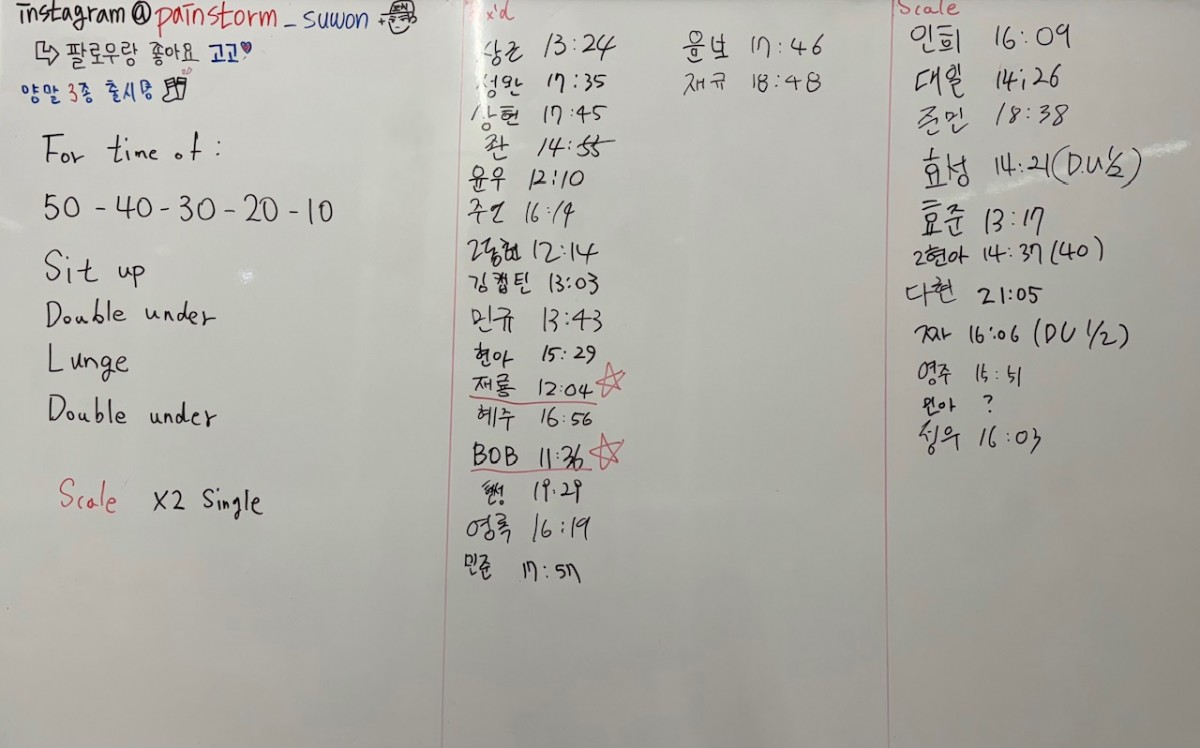 instagram @painstorm_suwon +
↳ 팔로우랑 좋아요 고고♥
양말 3종 출시중
For time of :
50 - 40 - 30 - 20 - 10
Sit up
Double under
Lunge
Double under
Scale X2 Single
x'd
상근 13:24
성완 17:35
상현 17:45
좐 14:55
윤우 12:10
주언 16:14
2동현 12:14
김캡틴 13:03
민규 13:43
현아 15:29
재룡 12:04 ☆
혜주 16:56
BOB 11:36 ☆
현성 19:29
영록 16:19
민준 17:57
윤보 17:46
재규 18:48
Scale
인희 16:09
대월 14:26
준민 18:38
효성 14:21 (D.U 1/2)
효준 13:17
2현아 14:37 (40)
다현 21:05
짜 16:06 (DU 1/2)
영주 15:51
원아 ?
성우 16:03